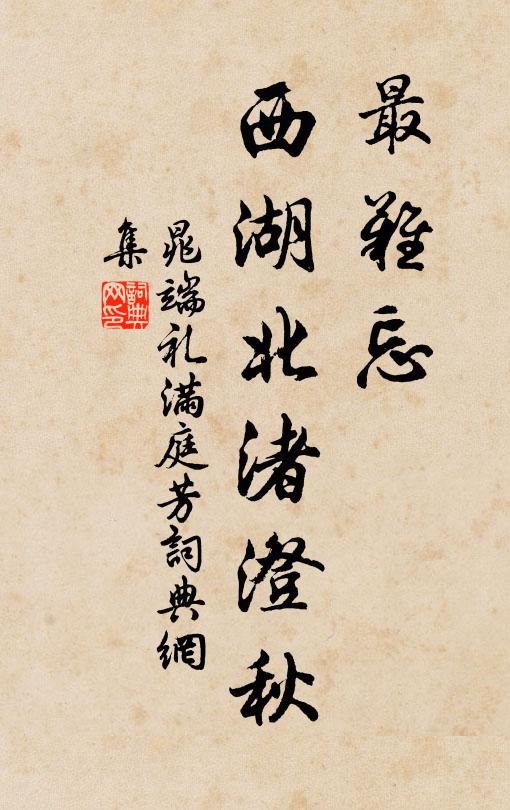 最難忘
西湖北渚澄秋
晁端礼满庭芳詞典網
集
詞典
网印